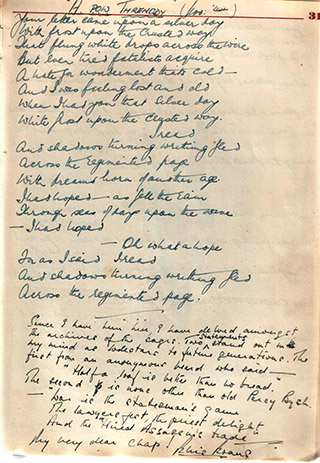 A POW THRENODY
31
Your letter came upon a silver day
With frost upon the crusted way
That flung white drops across the wire
But even tired fatalists acquire
A hate for wonderment thats cold —
And I was feeling lost and old
When I had your that silver day
White frost upon the crusted way.
I read
And shadows turning writing fled
Across the regimented page
With dreams born of another age
I had hoped — as fell the rain
Through seas of days upon the
— I had hoped
— Oh what a hope
For as I said I read
And shadows turning writing fled
Across the regimented page.
Since I have been here, I have delved amongst
the archives of the sages. Two statements stand out
my mind as to future generations. The
first from an anonymous who said —
"Half a loaf is better than no bread."
The second is none other than old Percy Bysh.
— War is the statesman's game
The lawyers jest the priest delight
And the "Hired Assassin's trade"
My very dear chap.